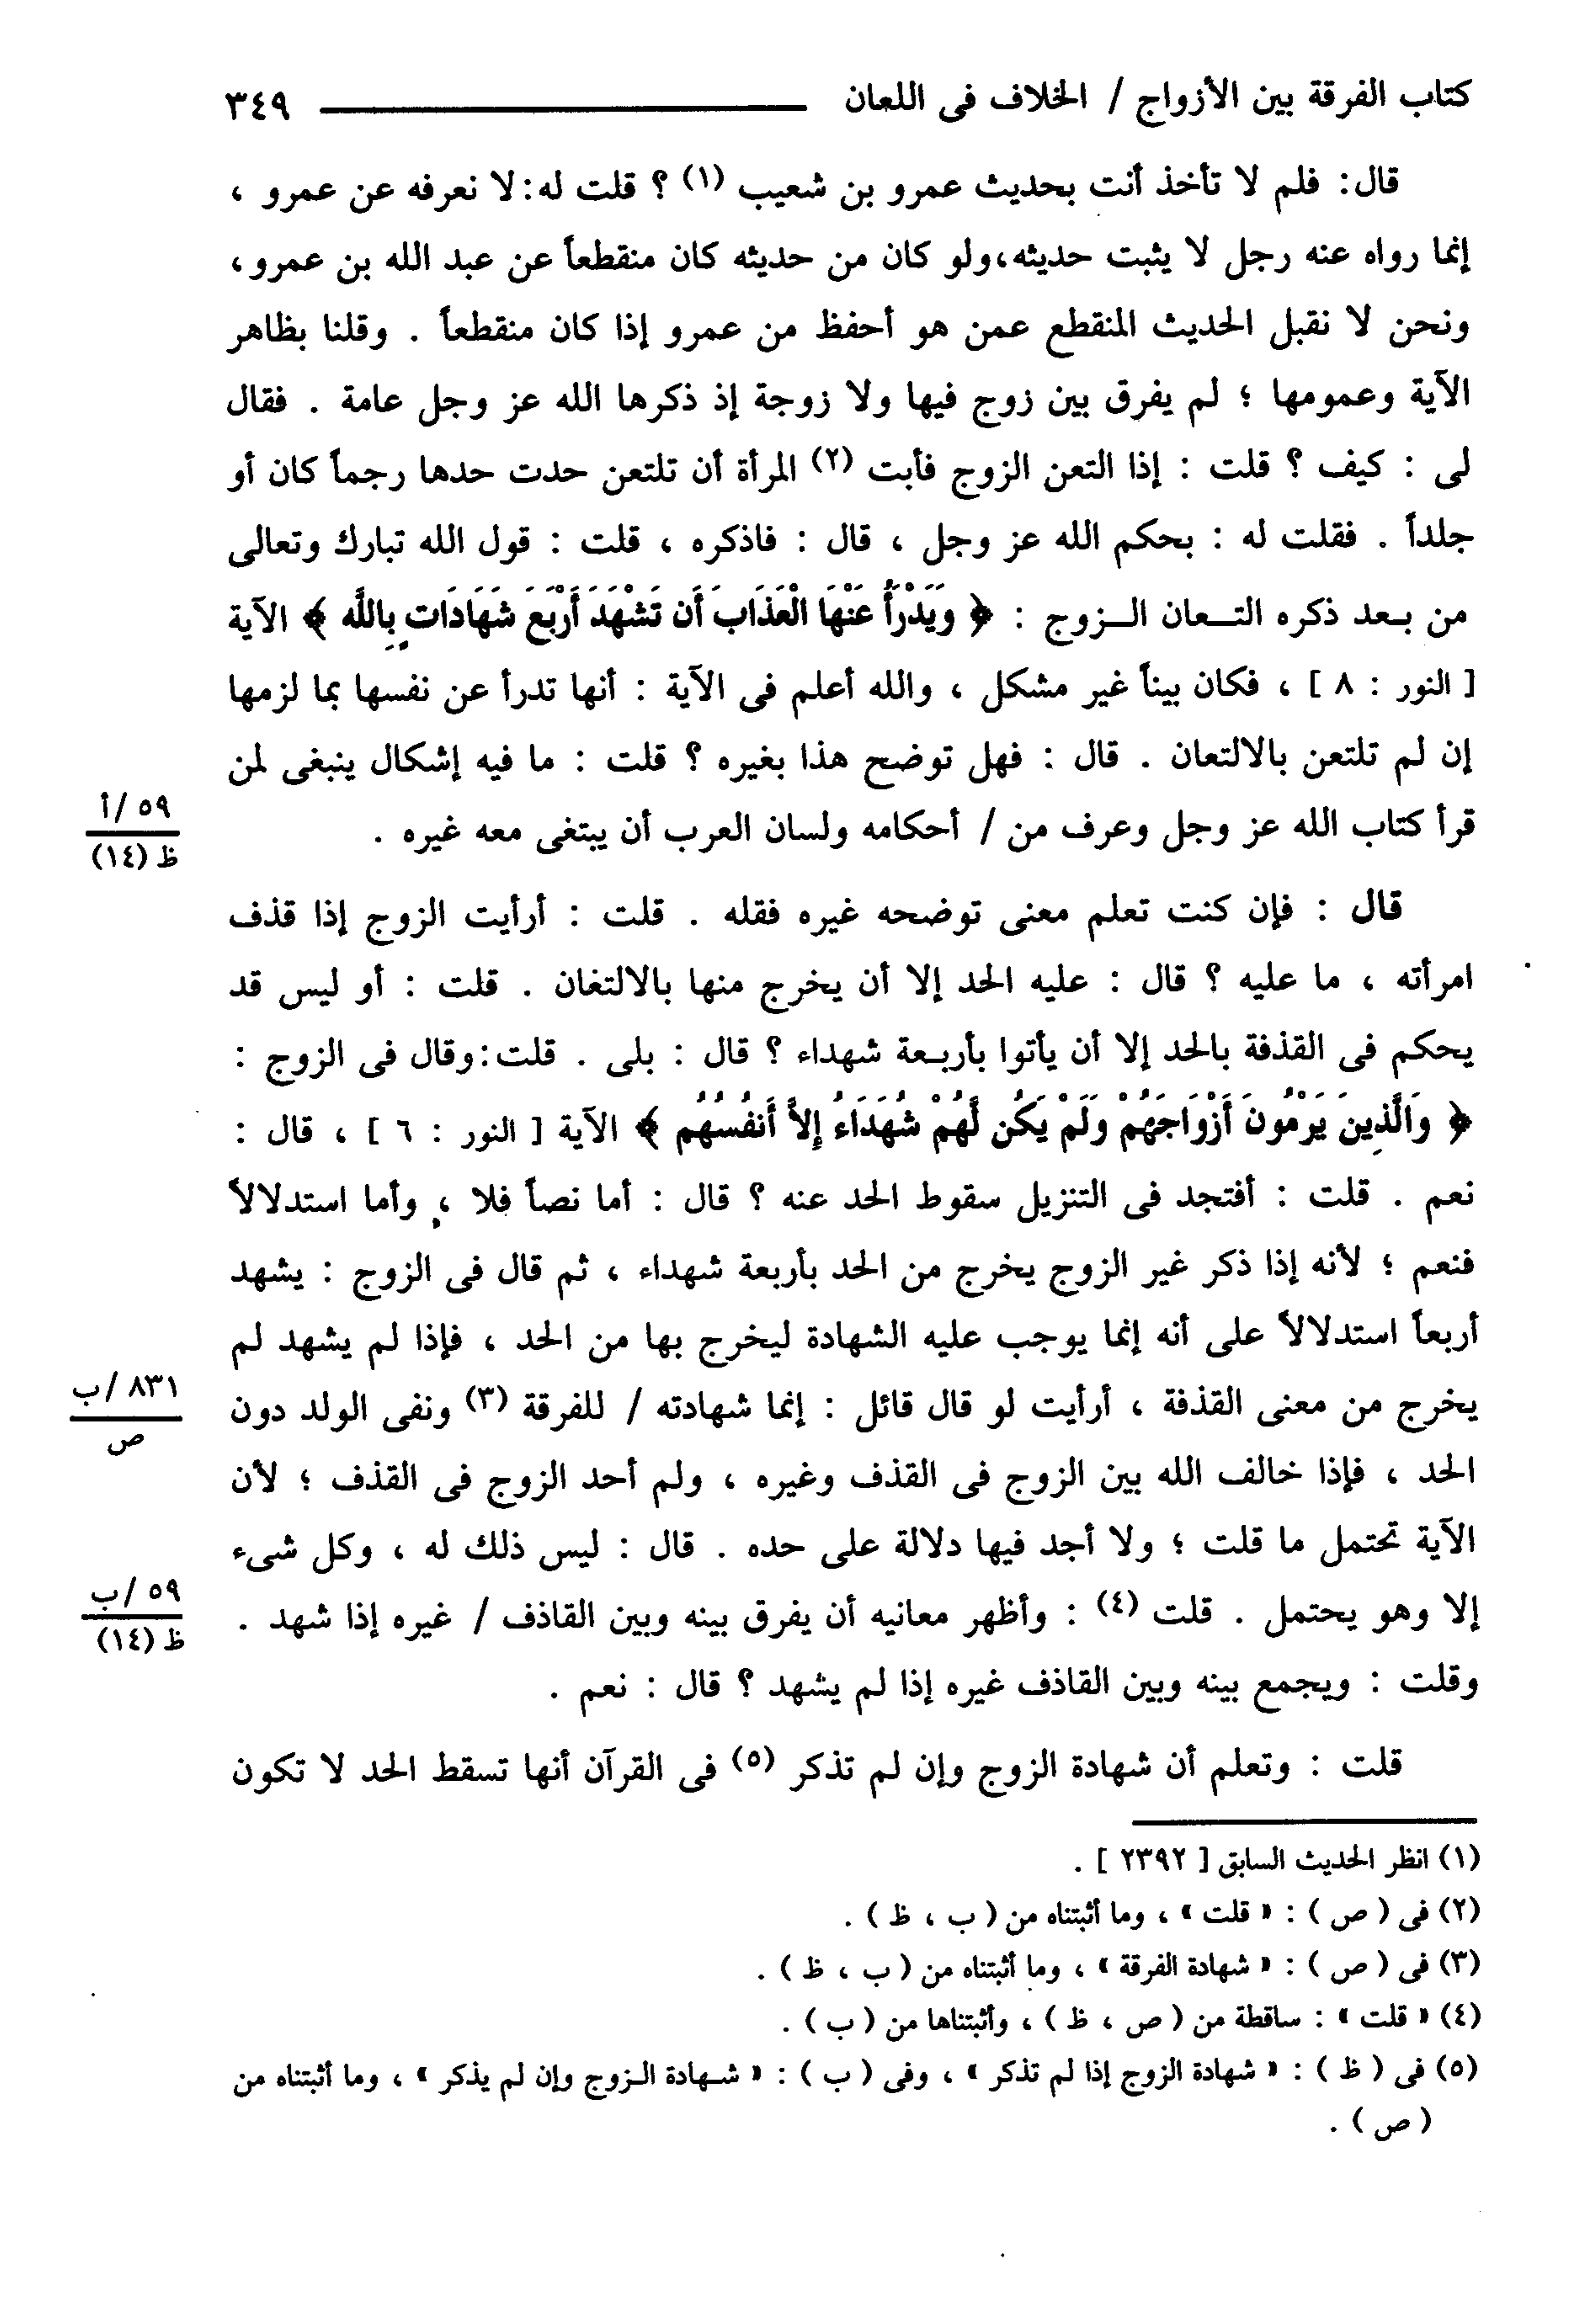 كتاب الفرقة بين الأزواج / الخلاف فى اللعان ٣٤٩
قال: فلم لا تأخذ أنت بحديث عمرو بن شعيب (١) ؟ قلت له: لا نعرفه عن عمرو ،
إنما رواه عنه رجل لا يثبت حديثه، ولو كان من حديثه كان منقطعاً عن عبد الله بن عمرو،
ونحن لا نقبل الحديث المنقطع عمن هو أحفظ من عمرو إذا كان منقطعاً . وقلنا بظاهر
الآية وعمومها ؛ لم يفرق بين زوج فيها ولا زوجة إذ ذكرها الله عز وجل عامة . فقال
لى : كيف ؟ قلت : إذا التعن الزوج فأبت (٢) المرأة أن تلتعن حدت حدها رجماً كان أو
جلداً . فقلت له : بحكم الله عز وجل ، قال : فاذكره ، قلت : قول الله تبارك وتعالى
من بعد ذكره التعان الزوج : ﴿ وَيَدْرَأُ عَنْهَا الْعَذَابَ أَن تَشْهَدَ أَرْبَعَ شَهَادَاتٍ بِاللَّه ﴾ الآية
[ النور : ٨ ] ، فكان بيناً غير مشكل ، والله أعلم فى الآية : أنها تدرأ عن نفسها بما لزمها
إن لم تلتعن بالالتعان . قال : فهل توضح هذا بغيره ؟ قلت : ما فيه إشكال ينبغى لمن
قرأ كتاب الله عز وجل وعرف من / أحكامه ولسان العرب أن يبتغى معه غيره .
٥٩ /أ
ظ (١٤)
قال : فإن كنت تعلم معنى توضحه غيره فقله . قلت : أرأيت الزوج إذا قذف
امرأته ، ما عليه ؟ قال : عليه الحد إلا أن يخرج منها بالالتغان . قلت : أو ليس قد
يحكم فى القذفة بالحد إلا أن يأتوا بأربعة شهداء ؟ قال : بلى . قلت: وقال فى الزوج :
﴿ وَالَّذِينَ يَرْمُونَ أَزْوَاجَهُمْ وَلَمْ يَكُن لَّهُمْ شُهَدَاءُ إِلاَّ أَنفُسُهُم ﴾ الآية [ النور : ٦ ] ، قال :
نعم . قلت : أفتجد فى التنزيل سقوط الحد عنه ؟ قال : أما نصاً فلا ، وأما استدلالاً
فنعم ؛ لأنه إذا ذكر غير الزوج يخرج من الحد بأربعة شهداء ، ثم قال فى الزوج : يشهد
أربعاً استدلالاً على أنه إنما يوجب عليه الشهادة ليخرج بها من الحد ، فإذا لم يشهد لم
يخرج من معنى القذفة ، أرأيت لو قال قائل : إنما شهادته / للفرقة (٣) ونفى الولد دون
٨٣١ /ب
ص
الحد ، فإذا خالف الله بين الزوج فى القذف وغيره ، ولم أحد الزوج فى القذف ؛ لأن
الآية تحتمل ما قلت ؛ ولا أجد فيها دلالة على حده . قال : ليس ذلك له ، وكل شىء
إلا وهو يحتمل . قلت (٤) : وأظهر معانيه أن يفرق بينه وبين القاذف / غيره إذا شهد .
٥٩ /ب
ظ (١٤)
وقلت : ويجمع بينه وبين القاذف غيره إذا لم يشهد ؟ قال : نعم .
قلت : وتعلم أن شهادة الزوج وإن لم تذكر (٥) فى القرآن أنها تسقط الحد لا تكون
(١) انظر الحديث السابق [ ٢٣٩٢ ] .
(٢) فى ( ص ) : « قلت » ، وما أثبتناه من ( ب ، ظ ) .
(٣) فى ( ص ) : « شهادة الفرقة » ، وما أثبتناه من ( ب ، ظ ) .
(٤) « قلت » : ساقطة من ( ص ، ظ ) ، وأثبتناها من ( ب ) .
(٥) فى ( ظ ) : « شهادة الزوج إذا لم تذكر » ، وفى ( ب ) : « شهادة الزوج وإن لم يذكر » ، وما أثبتناه من
( ص ) .